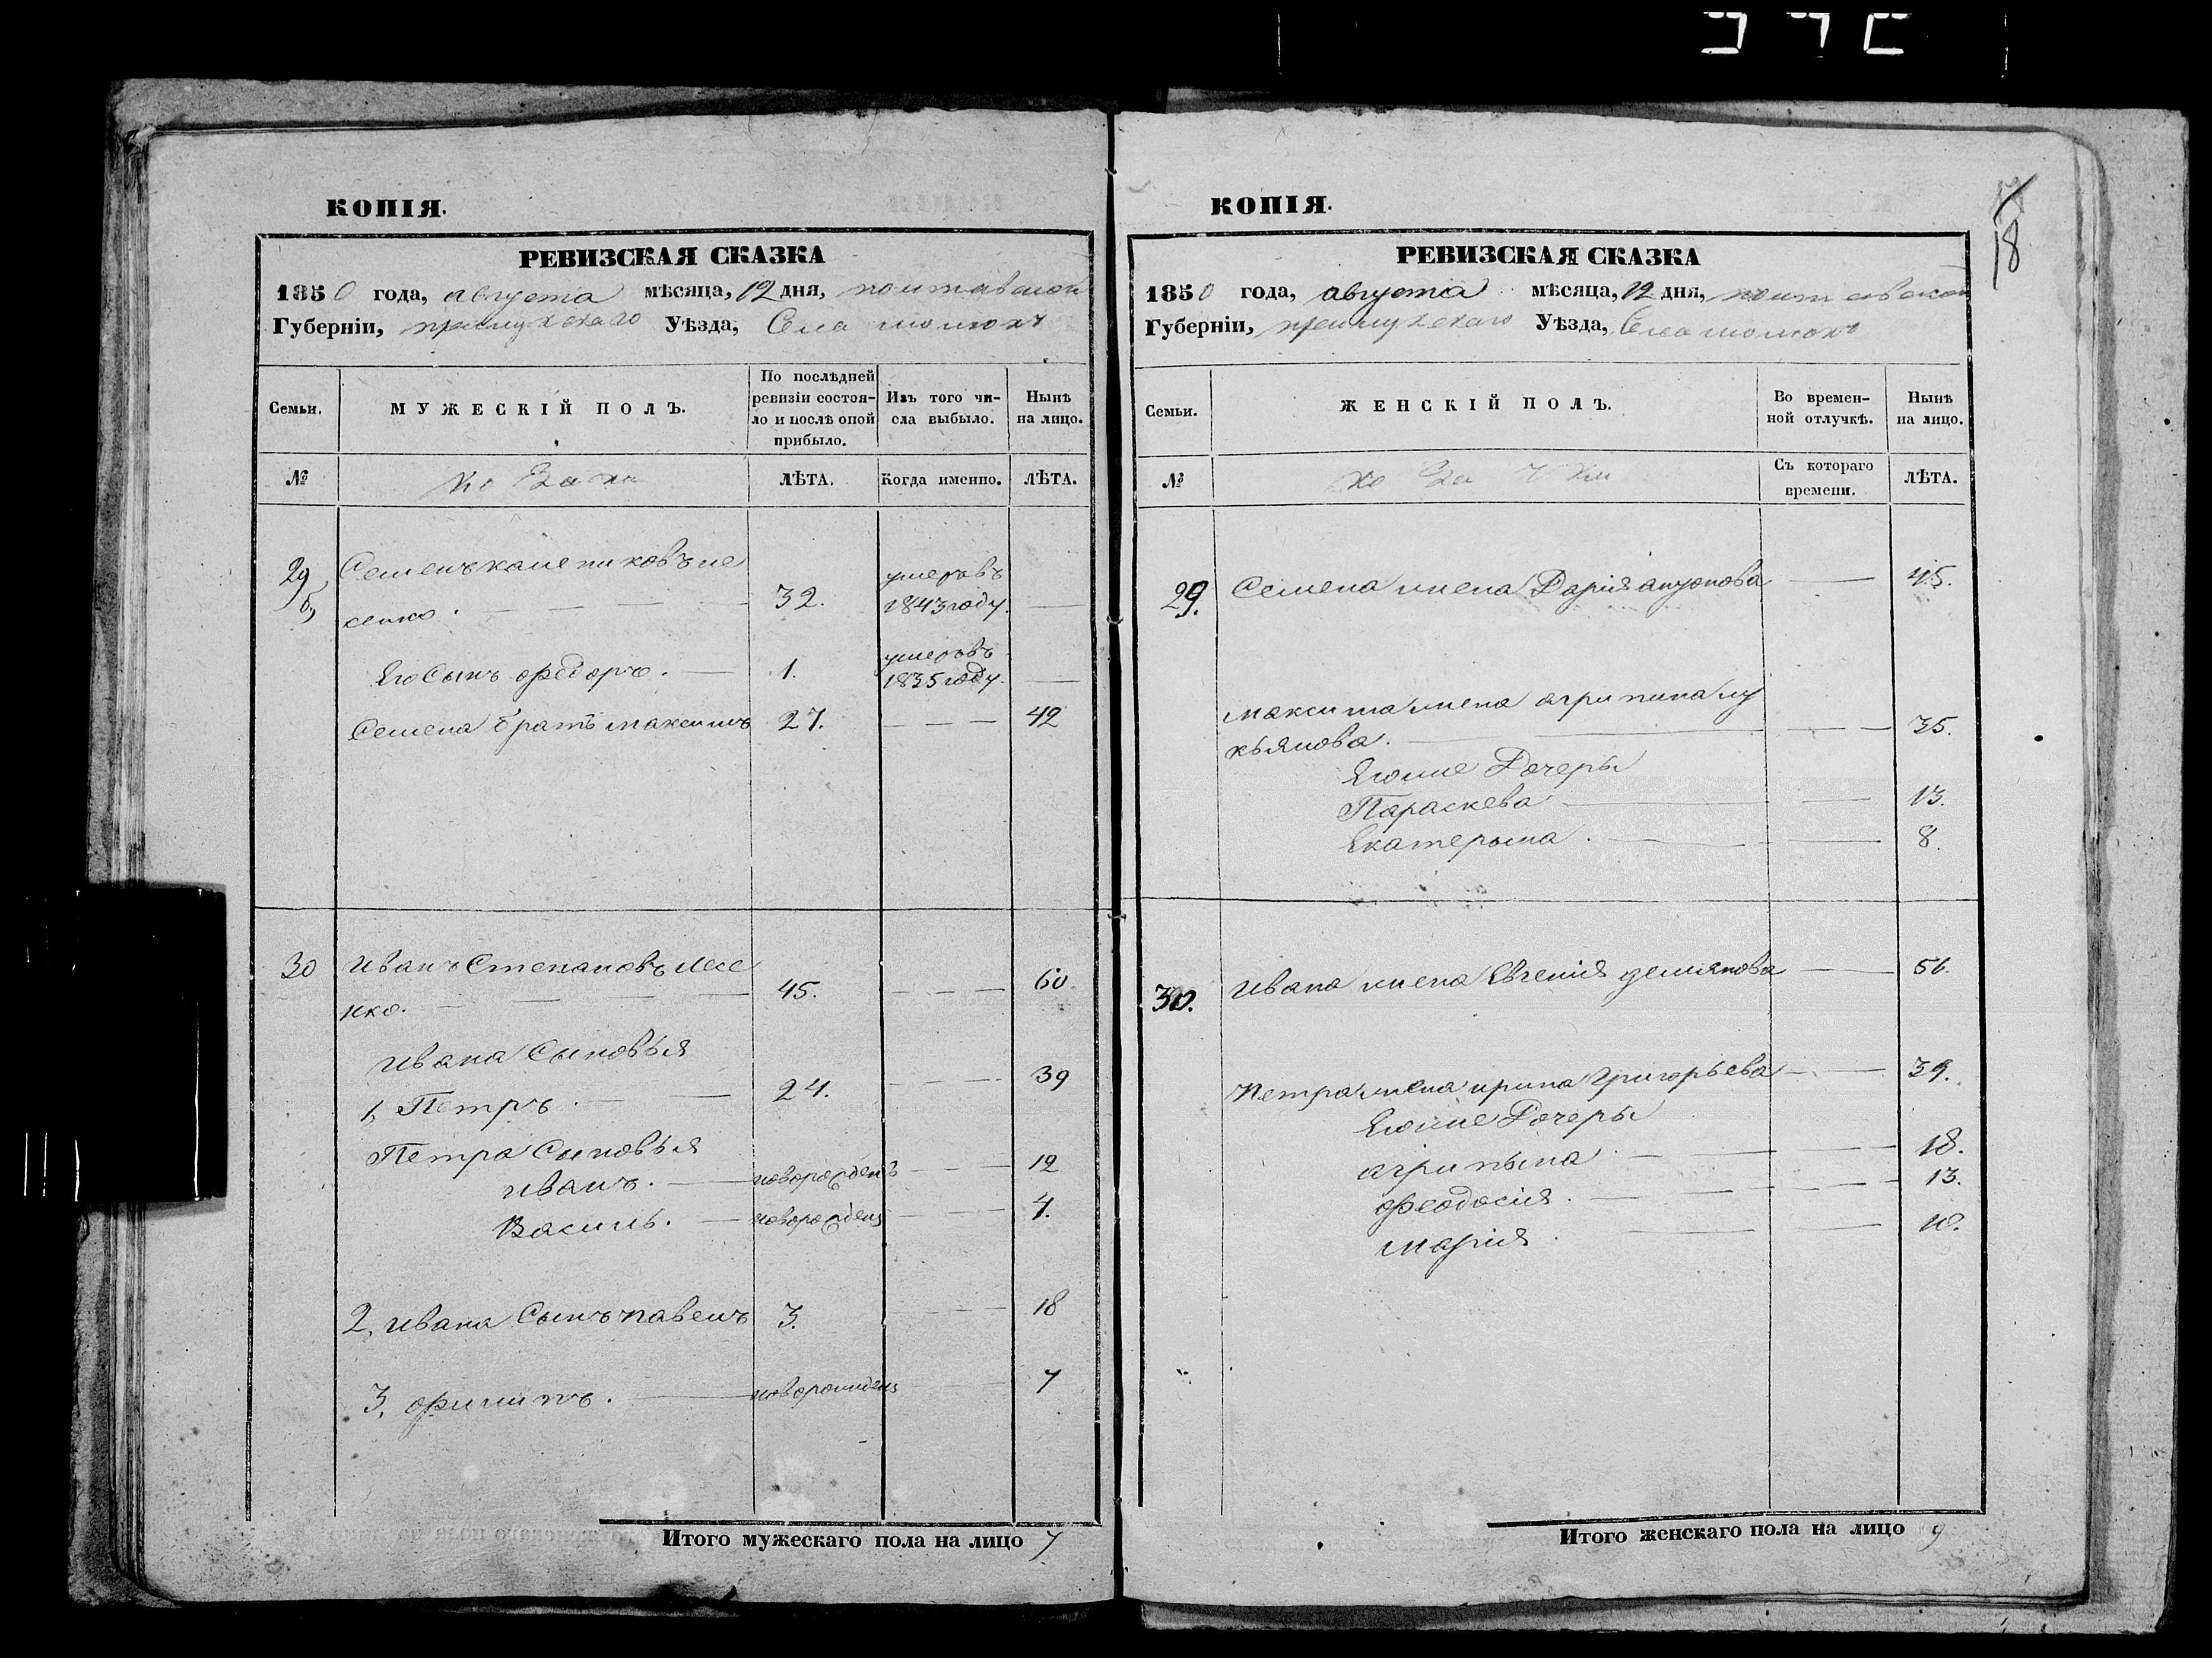 КОПІЯ.
РЕВИЗСКАЯ СКАЗКА
1850 года, августа мѣсяца, 12 дня, полтавской
Губерніи, прилукскаго Уѣзда, Села
Семьи.
МУЖЕСКІЙ ПОЛЪ.
По послѣдней ревизіи состоя-
ло и послѣ оной прибыло.
Изъ того чи-
сла выбыло.
Ныпѣ на лицо.
№
козаки
ЛѢТА.
Когда именно.
ЛѢТА.
29
Семенъ
сенко.
32.
умеръ въ
1843 году.
Его Сынъ Федоръ.
1.
умеръ въ
1835 году.
Семена братъ максимъ
27.
42
30
Иванъ Степановъ лесе
нко.
45.
60
Ивана Сыновья
1, Петръ
24.
39
Петра Сыновья
иванъ.
новорожденъ
12
Василь.
новорожденъ
4.
2, ивана Сынъ павелъ
3.
18
3, филипъ.
новорожденъ
7
Итого мужескаго пола на лицо 7
18
КОПІЯ.
РЕВИЗСКАЯ СКАЗКА
1850 года, августа мѣсяца, 12 дня, полтавской
Губерніи, прилукскаго Уѣзда, Села
Семьи.
ЖЕНСКІЙ ПОЛЪ.
Во времен-
ной отлучкѣ.
Ныпѣ на лицо.
№
козачки
Съ котораго времени.
ЛѢТА.
29.
Семена жена Дарія
45.
максима жена агрипина лу
кьянова.
35.
Егоже Дочеры
Параскева
13.
Екатерына.
8.
30.
Ивана жена Евгенія демянова
51.
Петра жена ирина Григорьева
39.
Егоже Дочеры
агрипына
18.
Феодосія.
13.
марія.
10.
Итого женскаго пола на лицо 9